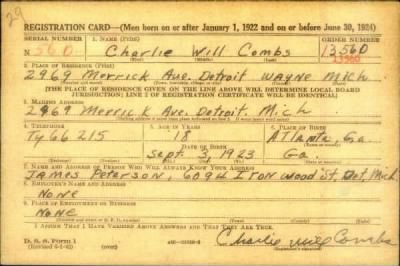 29
REGISTRATION CARD—(Men born on or after January 1, 1922 and on or before June 30, 1924)
SERIAL NUMBER 1. NAME (Print) ORDER NUMBER
N 560 Charlie Will Combs 13,560
(First) (Middle) (Last) 13560
2. PLACE OF RESIDENCE (Print)
2969 Merrick Ave. Detroit WAYNE Mich.
[THE PLACE OF RESIDENCE GIVEN ON THE LINE ABOVE WILL DETERMINE LOCAL BOARD
JURISDICTION; LINE 2 OF REGISTRATION CERTIFICATE WILL BE IDENTICAL]
3. MAILING ADDRESS
2969 Merrick Ave. Detroit. Mich
4. TELEPHONE 5. AGE IN YEARS 6. PLACE OF BIRTH
Ty 66215 18 ATlanta, Ga
DATE OF BIRTH
Sept. 3 1923 Ga
7. NAME AND ADDRESS OF PERSON WHO WILL ALWAYS KNOW YOUR ADDRESS
James Peterson, Ironwood St. Det. Mich
8. EMPLOYER'S NAME AND ADDRESS
None
9. PLACE OF EMPLOYMENT OR BUSINESS
None
I AFFIRM THAT I HAVE VERIFIED ABOVE ANSWERS AND THAT THEY ARE TRUE.
D. S. S. Form 1
Charlie Will Combs